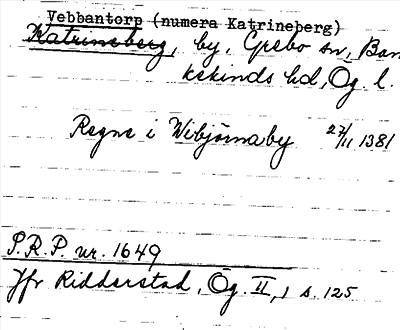 Vebbantorp (numera Katrineberg)
Katrineberg, by, Grebo sn, Ban
kekinds hd, Ög. l.
Ragne i Wibjörnaby 27/11 1381
P.R.P. nr. 1649
Jfr Ridderstad, Ög. II, 1 s. 125